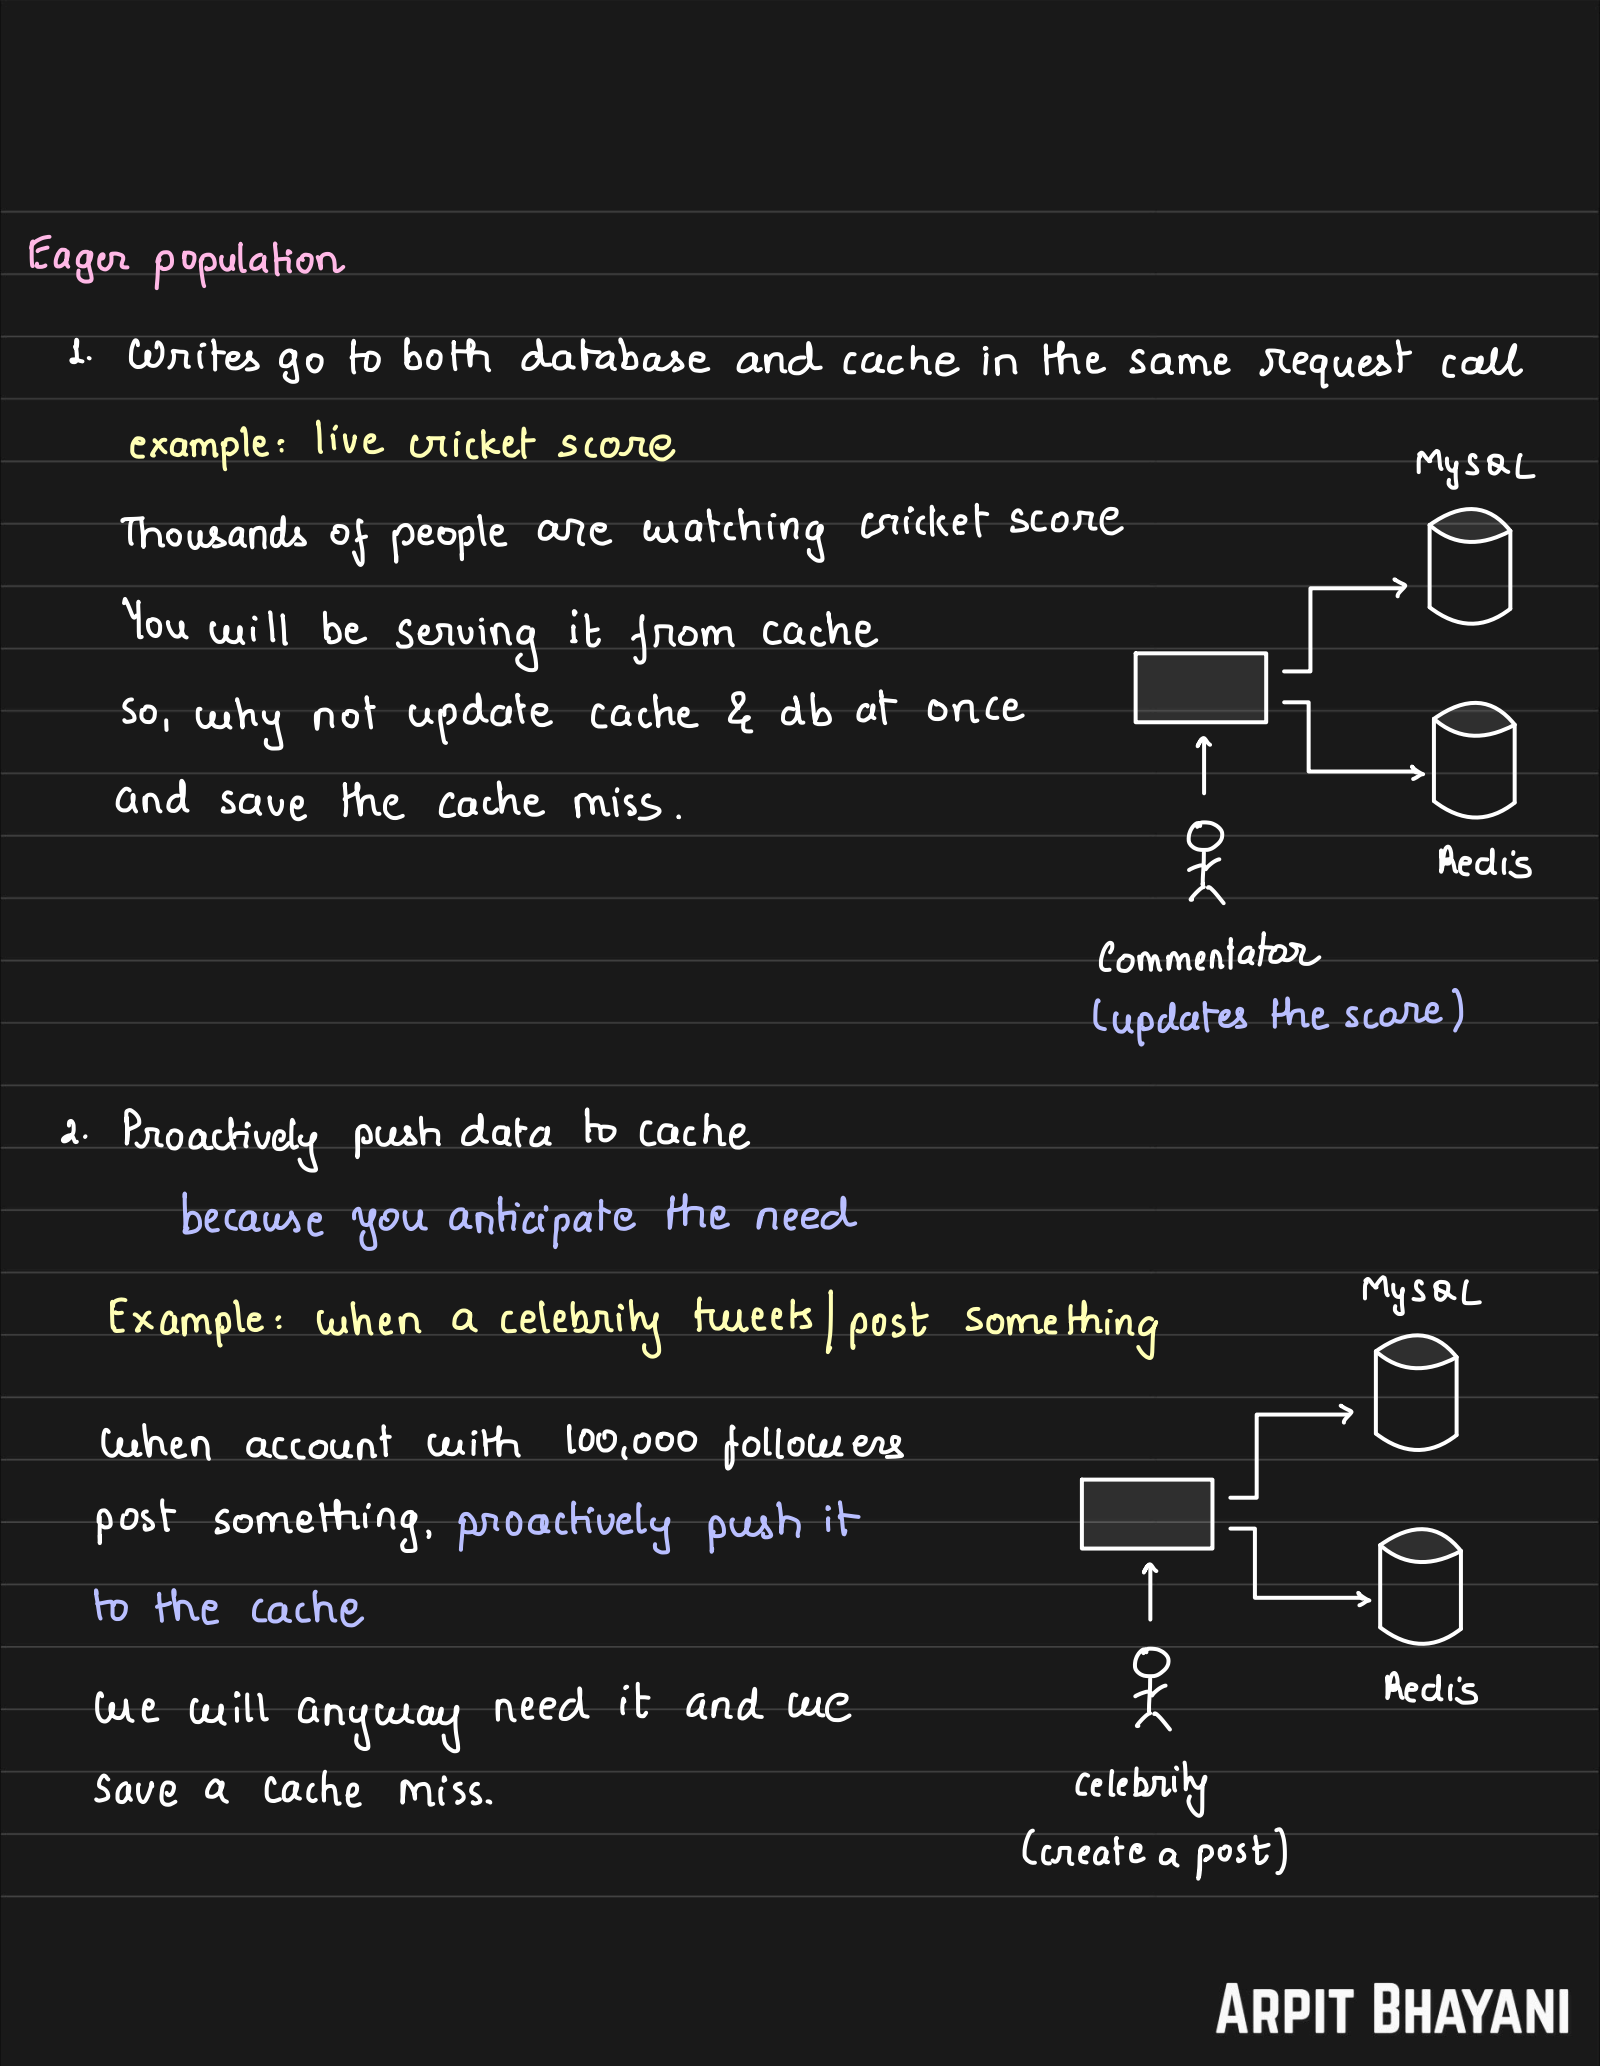 Eager population
1. Writes go to both database and cache in the same request call
example: live cricket score
MySQL
Thousands of people are watching cricket score
You will be serving it from cache
so, why not update cache & db at once
and save the cache miss.
Redis
Commentator
(updates the score)
2. Proactively push data to cache
because you anticipate the need
MySQL
Example: when a celebrity tweets/post something
when account with 100,000 followers
post something, proactively push it
to the cache
Redis
we will anyway need it and we
save a cache miss.
celebrity
(create a post)
ARPIT BHAYANI